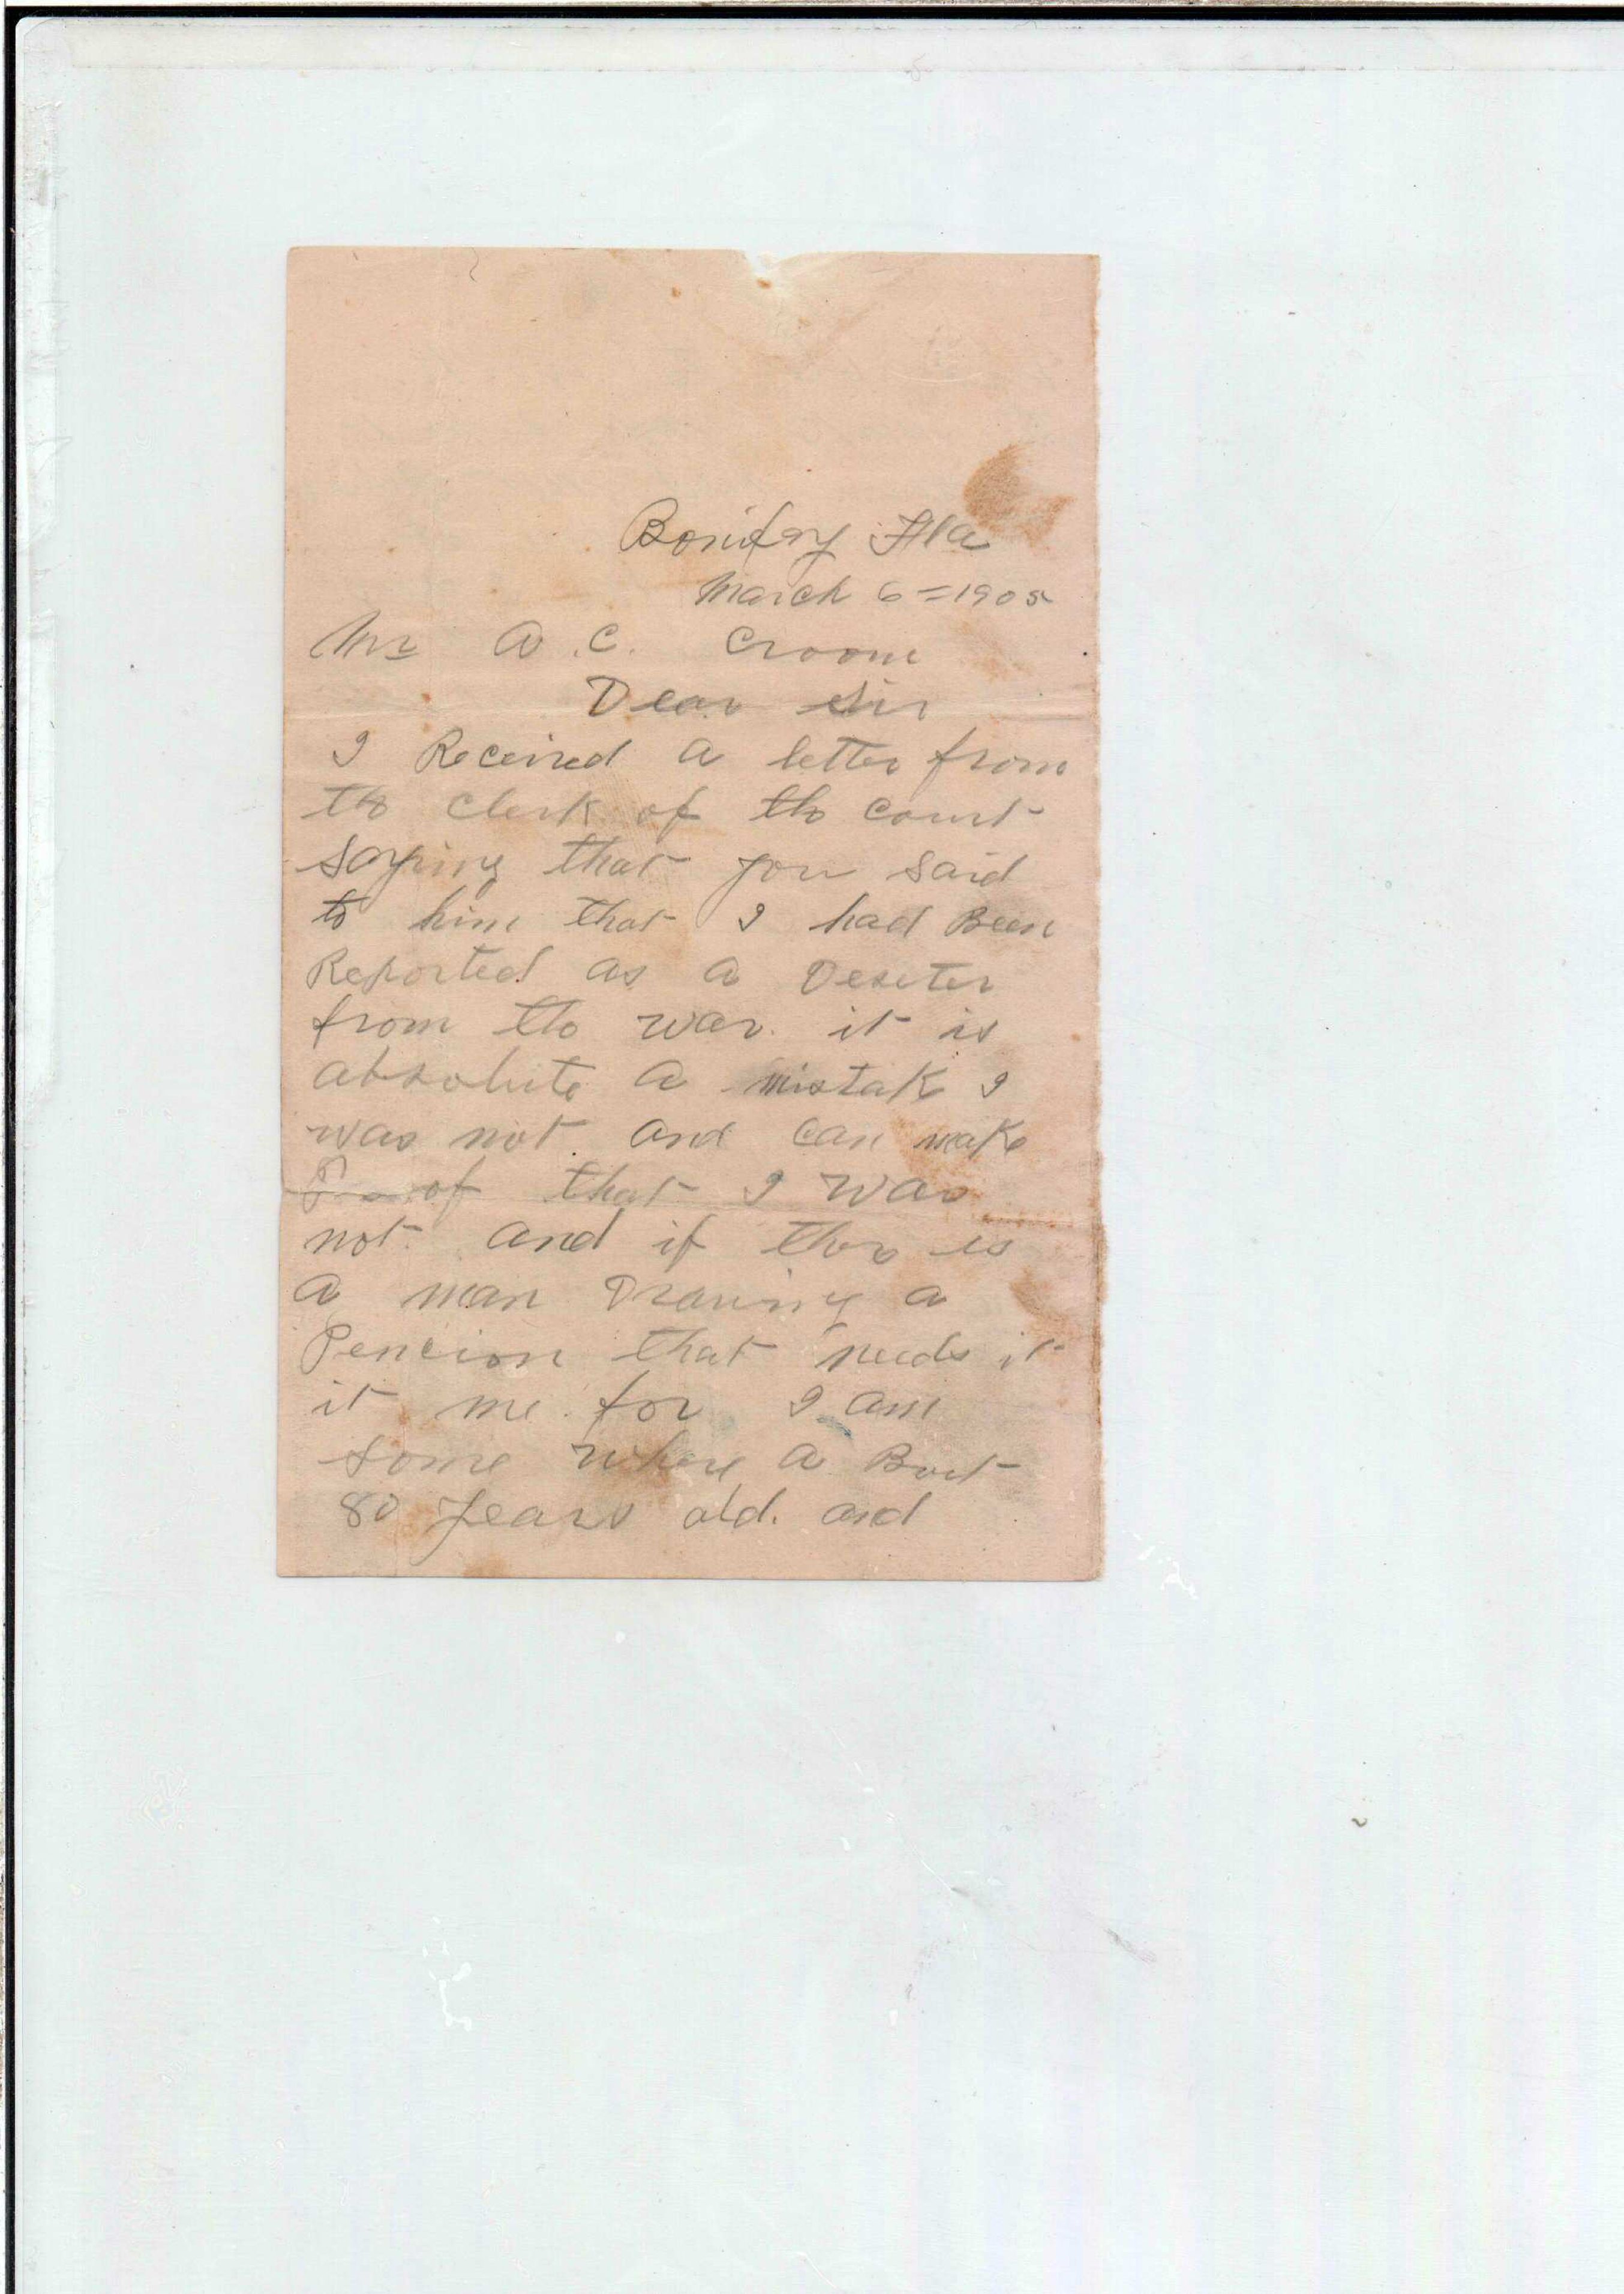 Bonifay Fla
March 6=1905
Mr A.C. Croom
Dear Sir
I Received a letter from
the clerk of the court
saying that you said
to him that I had Been
Reported as a Deseter
from the war. it is
absolute a mistake I
was not and can make
Proof that I was
not. and if ther is
a man Drawing a
Pencion that needs it
it me for I am
some where a Bout
80 years old. and